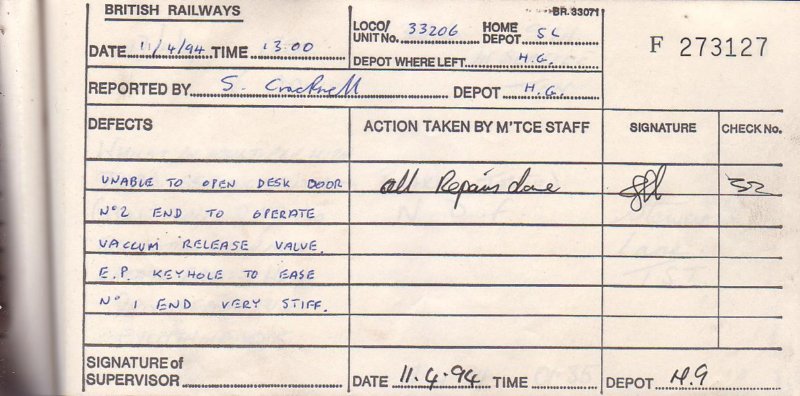 BRITISH RAILWAYS
BR. 33071
DATE 11/4/94 TIME 13.00
LOCO/ UNIT No. 33206
HOME DEPOT SL
DEPOT WHERE LEFT H.G.
F 273127
REPORTED BY S. Cracknell DEPOT H.G.
DEFECTS ACTION TAKEN BY M'TCE STAFF SIGNATURE CHECK No.
UNABLE TO OPEN DESK DOOR all Repairs done 32
No 2 END TO OPERATE
VACCUM RELEASE VALVE.
E.P. KEYHOLE TO EASE
No 1 END VERY STIFF.
SIGNATURE of
SUPERVISOR DATE 11.4.94 TIME DEPOT H.G